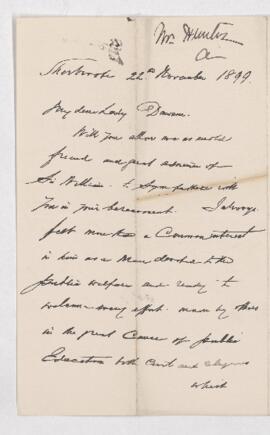 Wm Hunter
Sherbrooke 22d November 1899
My dear Lady Dawson.
Will you allow me as an old
friend and great admirer of
Sir William to sympathize with
you in your bereavement. I always
felt more than a Common interest
in him as a Man devoted to the
public welfare and ready to
welcome every effort made by those
in the great Cause of public
Education both Civil and religious
which